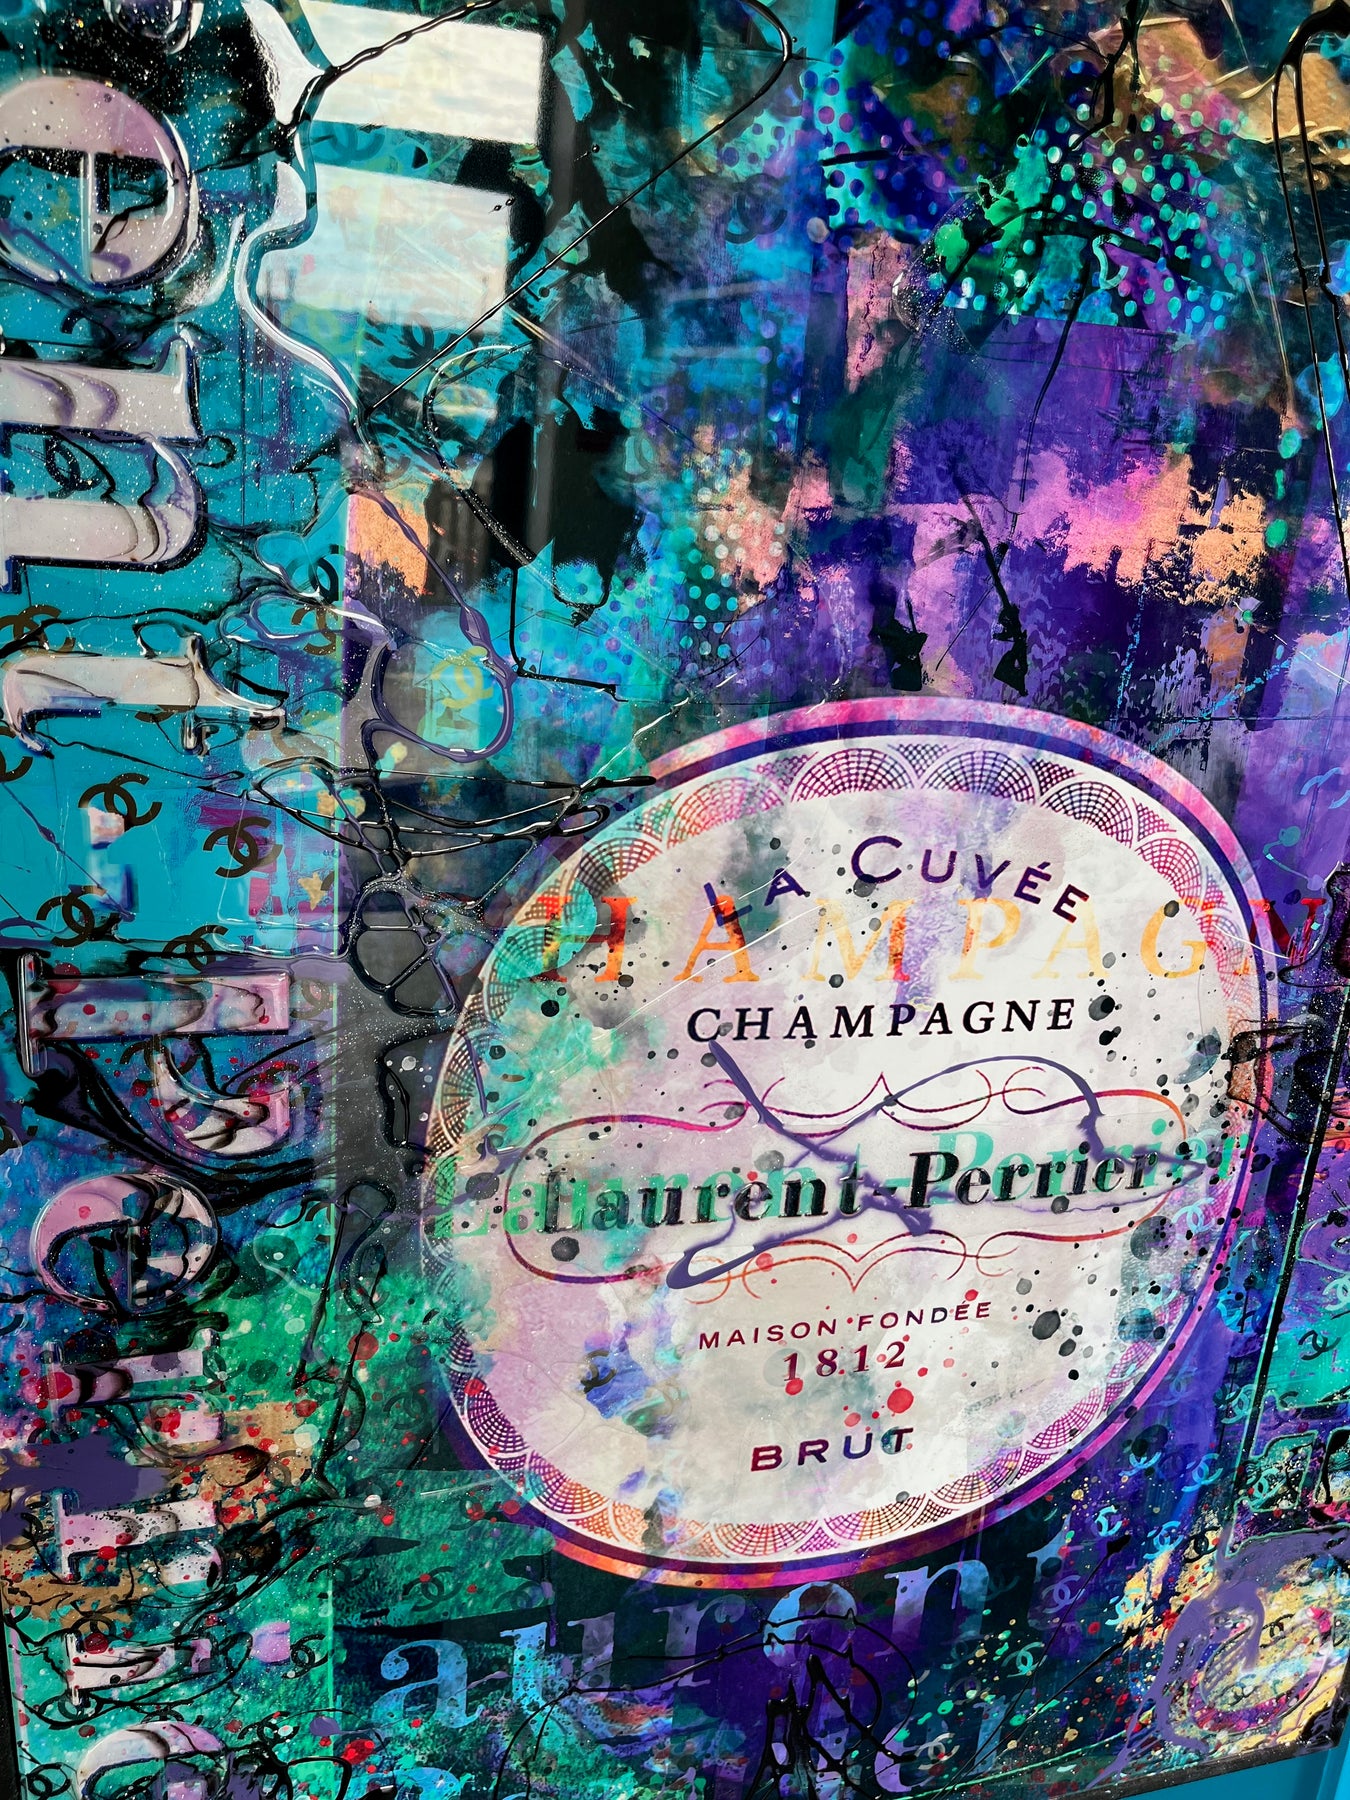 LA CUVÉE
HAMPAGN
CHAMPAGNE
Laurent-Perrier
Laurent-Perrier
MAISON FONDÉE
1812
BRUT
aurent
ent-Perrier